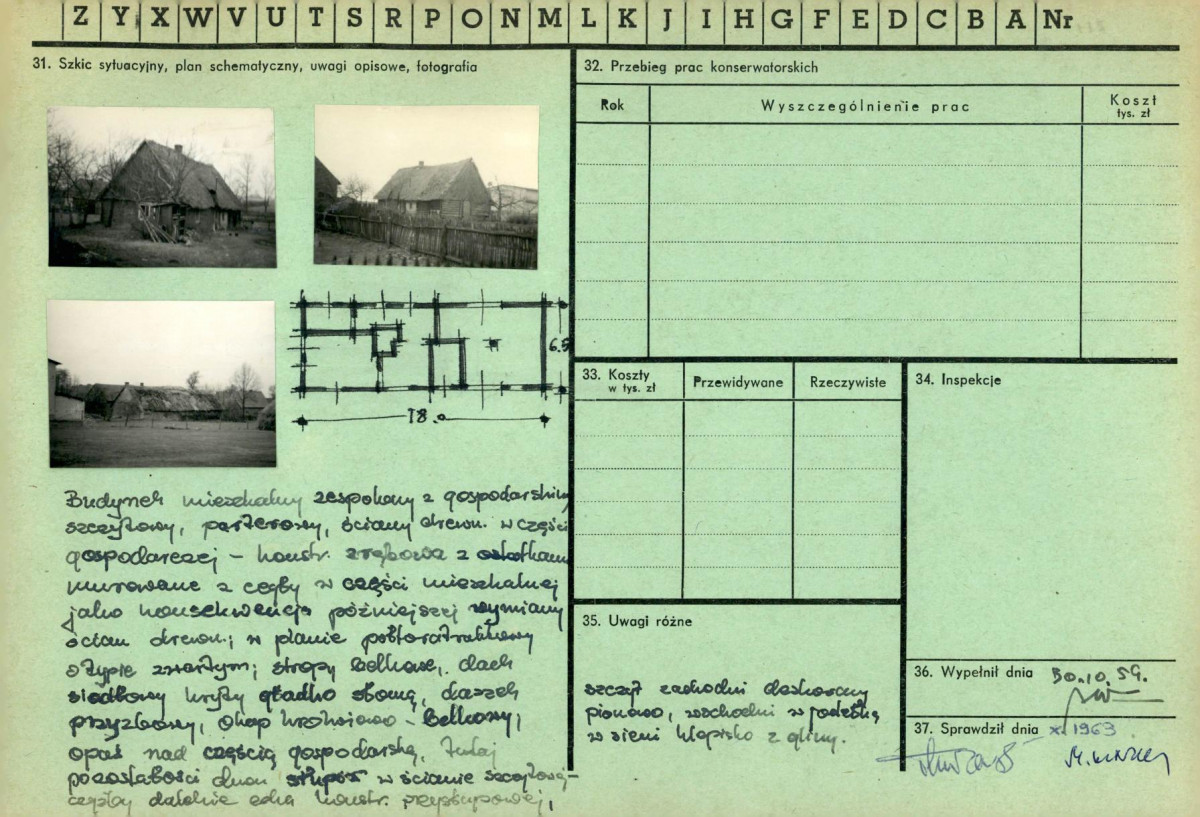 Z Y X W V U T S R P O N M L K J I H G F E D C B A Nr
31. Szkic sytuacyjny, plan schematyczny, uwagi opisowe, fotografia
6.5
18.0
Budynek mieszkalny zespolony z gospodarskim
szczytowy, parterowy, ściany drewn. w części
gospodarczej – konstr. zrębowa z ostatkami
murowane z cegły w części mieszkalnej
jako konsekwencja późniejszej wymiany
ścian drewn.; w planie półtoratraktowy
o typie zwartym; stropy belkowe. dach
siodłowy kryty gładko słomą, daszek
przyzbowy, okap krokwiowo – belkowy,
opaś nad częścią gospodarską, tutaj
pozostałości dwon słupów w ścianie szczytowej –
dalekie echa konstr. przysłupowej,
32. Przebieg prac konserwatorskich
Rok
Wyszczególnienie prac
Koszt
tys. zł
33. Koszty
w tys. zł
Przewidywane
Rzeczywiste
34. Inspekcje
35. Uwagi różne
szczyt zachodni deskowany
pionowo, wschodni w jodełkę
w sieni klepisko z gliny.
36. Wypełnił dnia 30.10.59.
37. Sprawdził dnia XI 1963